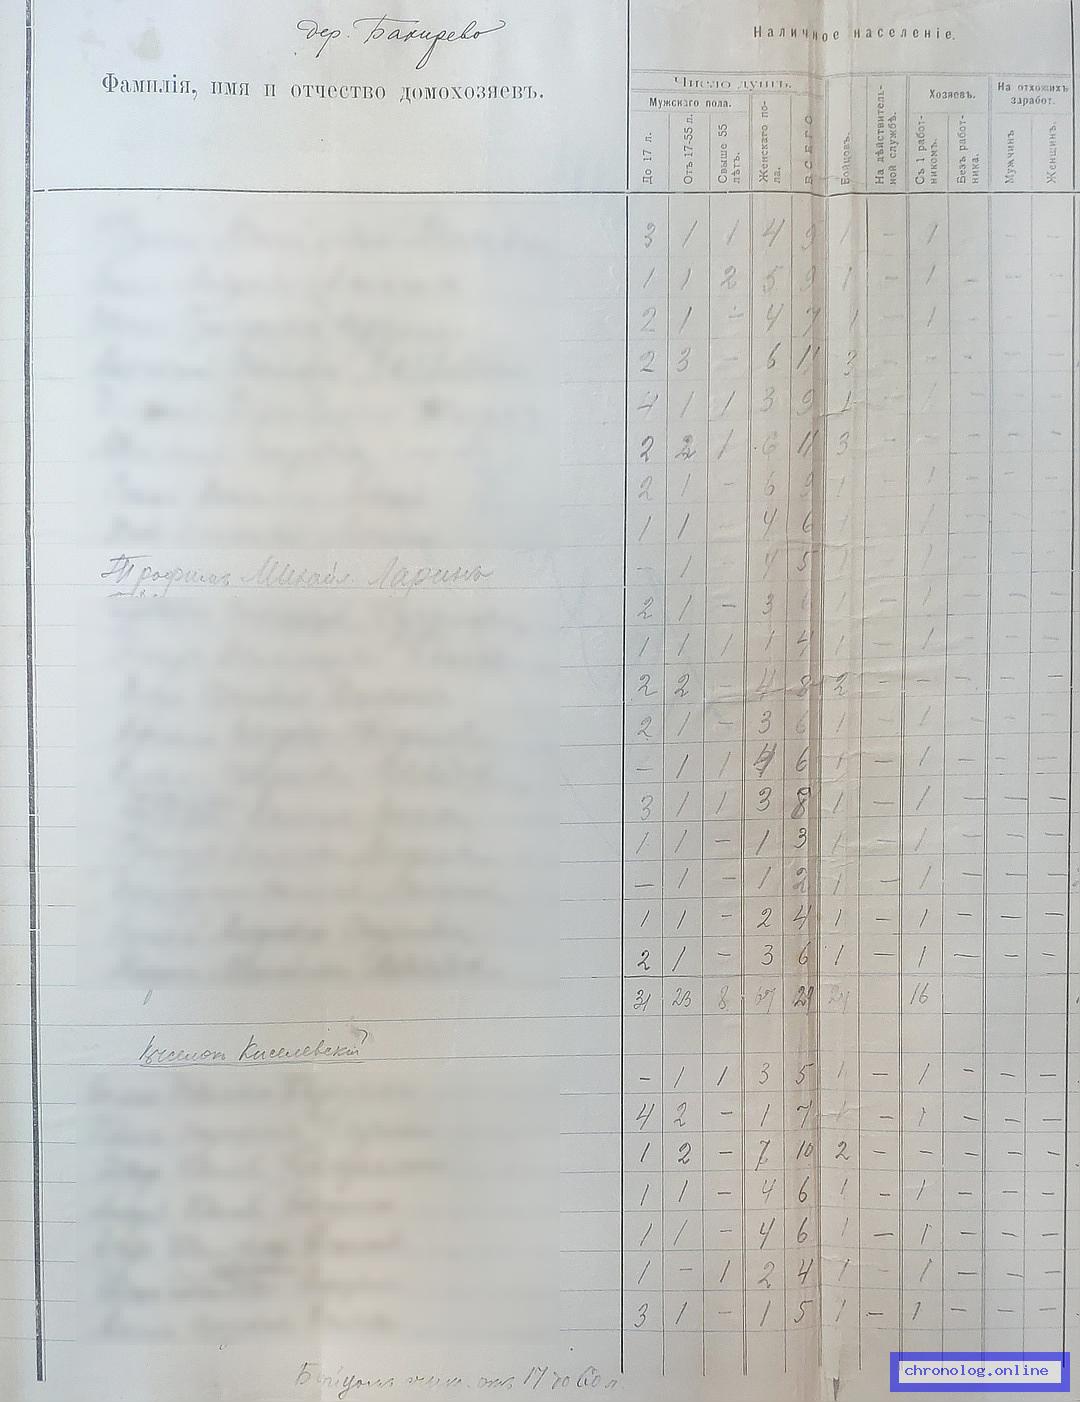 дер. Бахирево
Наличное населеніе.
Фамилія, имя и отчество домохозяевъ.
Число душъ.
Мужского пола.
До 17 л.
Отъ 17-55 л.
Свыше 55 лѣтъ.
Женскаго пола.
ВСЕГО
Бойцовъ.
На дѣйствительной службѣ.
Хозяевъ.
Съ 1 работникомъ.
Безъ работника.
На отхожихъ заработ.
Мужчинъ
Женщинъ.
3 1 1 4 9 1 - 1 - -
1 1 2 5 9 1 - 1 - - -
2 1 - 4 7 1 - 1 - - -
2 3 - 6 11 3 - - - - -
4 1 1 3 9 1 - 1 - - -
2 2 1 6 11 3 - - - -
2 1 - 6 9 1 - 1 - - -
1 1 - 4 6 1 - 1 - - -
Трофимъ Михайл. Ларинъ - 1 - 4 5 1 - 1 - - -
2 1 - 3 1 - 1 - - -
1 1 1 1 4 1 - 1 - - -
2 2 - 4 8 2 - - - - -
2 1 - 3 6 1 - 1 - - -
- 1 1 4 6 1 - 1 - - -
3 1 1 3 8 1 - 1 - - -
1 1 - 1 3 1 - 1 - - -
- 1 - 1 2 1 - 1 - - -
1 1 - 2 4 1 - 1 - - -
2 1 - 3 6 1 - 1 - - -
31 23 8 67 16
Выселокъ Киселевскій
- 1 1 3 5 1 - 1 - - -
4 2 - 1 7 1 - 1 - - -
1 2 - 7 10 2 - - - - -
1 1 - 4 6 1 - 1 - - -
1 1 - 4 6 1 - 1 - - -
1 - 1 2 4 1 - 1 - - -
3 1 - 1 5 1 - 1 - - -
отъ 17 до 60 л.
chronolog.online